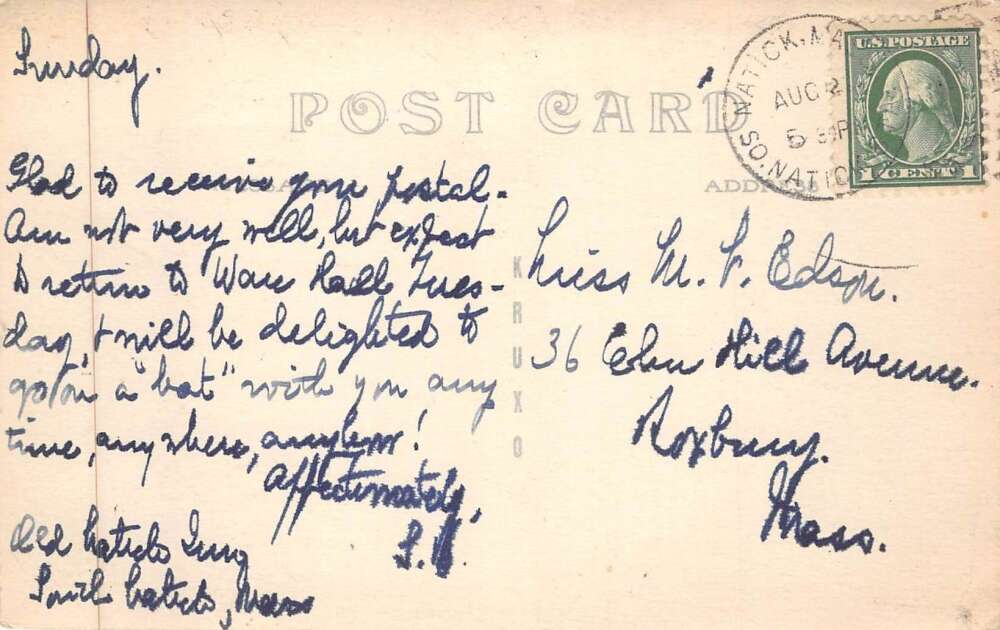 Sunday.
POST CARD
NATICK, MA
AUG 2
5 PM
SO. NATIC
U.S. POSTAGE
1 CENT 1
Glad to receive your postal.
Am not very well, but expect
to return to Ware Hall Tues-
day, & will be delighted to
go on a "bat" with you any
time, anywhere, anyhow!
Affectionately,
S.
Old Natick Inn
South Natick, Mass
ADDRESS
KRUXO
Miss M. F. Edson.
36 Elm Hill Avenue.
Roxbury.
Mass.